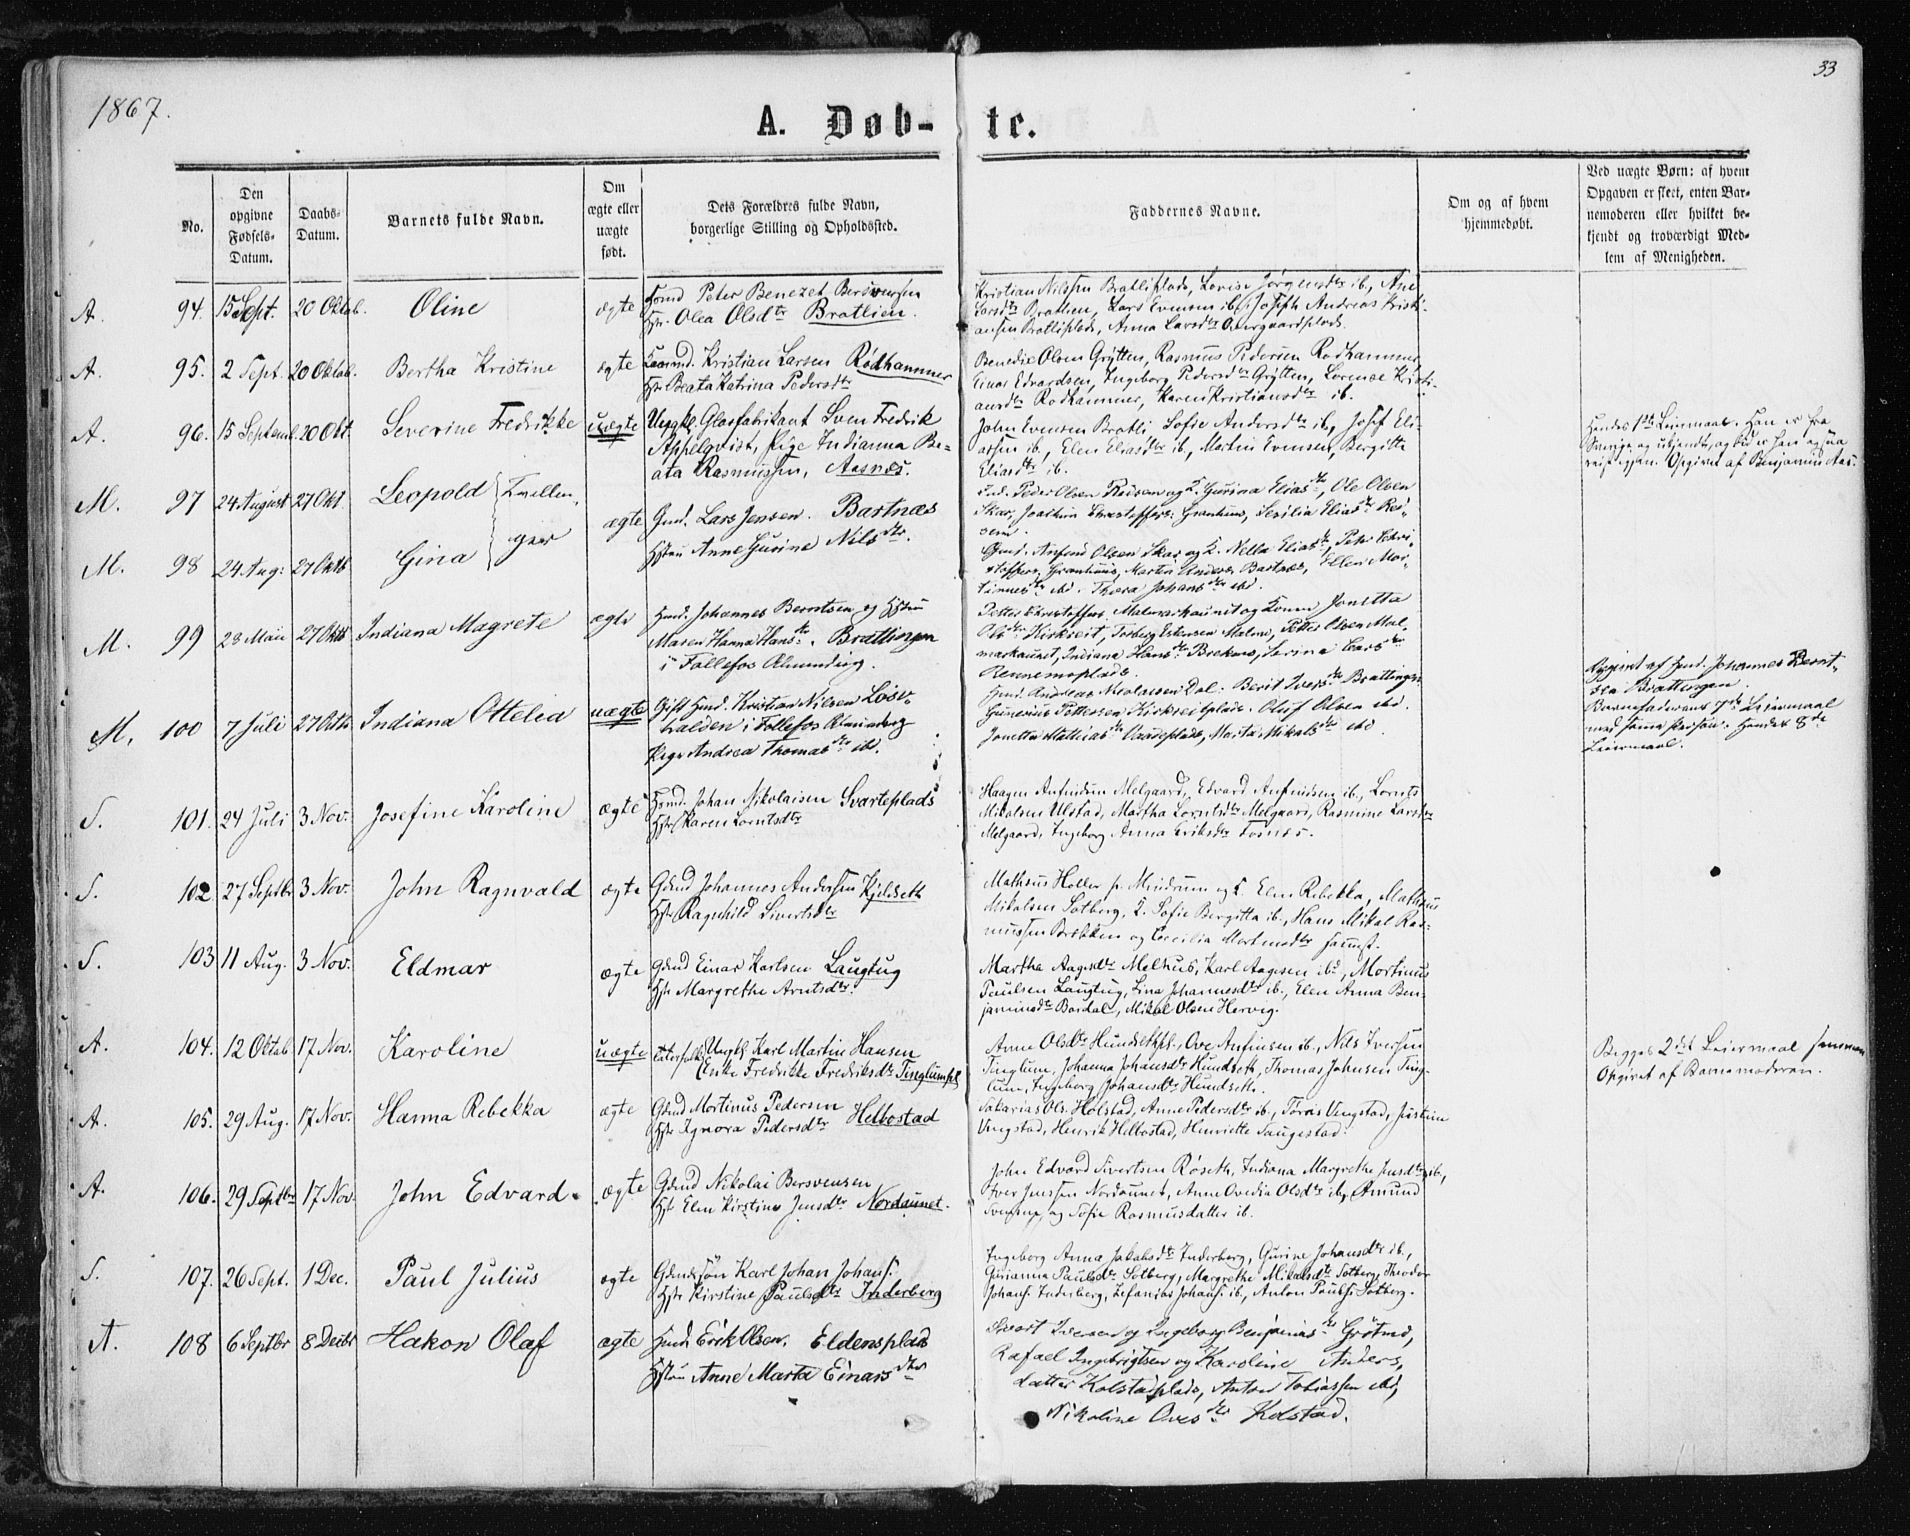 33
1867.
A. Døb- te.
No.
Den opgivne Fødsels-Datum.
Daabs-Datum.
Barnets fulde Navn.
Om ægte eller uægte født.
Dets Forældres fulde Navn, borgerlige Stilling og Opholdssted.
Faddernes Navne.
Om og af hvem hjemmedøbt.
Ved uægte Børn: af hvem Opgaven er skeet, enten Barnemoderen eller hvilket bekjendt og troværdigt Medlem af Menigheden.
A. 94. 15 Sept. 20 Oktob. Oline ægte Peter Benezet Bersvensen
Olea Olsdtr Bratlien.
Kristian Nilssen Bratliplads, Lovise Jørgensdtr ib, Ane
Larsdtr Bratlien, Lars Evensen ib, Joseph Andreas Kristi-
ansen Bratliplads, Anna Larsdtr
A. 95. 2 Sept. 20 Oktob. Bertha Kristine ægte Kristian Larsen Rødhammer
Beata Katrina Pedersdtr
Olsen Grytten, Rasmus Pedersen Rødhammer,
Einar Edvardsen, Ingeborg Pedersdtr Grytten, Lorense Kristi-
ansdtr Rødhammer, Karen Kristiansdtr ib.
A. 96. 15 Septemb. 20 Okt. Severine Fredrikke uægte Ungkl. Glasfabrikant Sven Fredrik
Appelqvist, Pige Indianna Be-
ata Rasmussen, Aasnes.
John Evensen Bratli, Sofie Andersdtr ib, Josef Eli-
assen ib., Elen Eliasdtr ib., Martin Evensen, Bergitte
Eliasdtr ib.
Hendes 1ste Leiermaal. Han er fra
Sverige og ukjendt, og
igjen. Opgivet af Benjamin Aas.
M. 97 24 August 27 Okt. Leopold Tvillen-
ægte Gmd. Lars Jensen. Bartnæs
Peder Olsen og K. Gurina Eliasdtr, Ole Olsen
Skar, Joachim Christoffers: Granhuus, Sesilia Eliasdtr
M. 98 24 Aug: 27 Oktb Gina ger
Hstru Anne Gurine Nilsdtr.
Gmd. Anfind Olsen Skar og K. Nella Eliasdtr, Peter Chri-
stoffers. Granhuus, Martin Anders. Bartnæs, Ellen Mor-
tinusdtr ibd. Thora Johansdtr ibd.
M. 99 28 Maii 27 Oktb Indiana Magrete ægte Hmd. Johannes Berntsen og Hstru
Maren Hanna Hansdtr. Brattingen
i Follefos Almending.
Petter Christoffers. Malmarkaunet og Konen Jonetta
Olsdtr Kirkreit, Torberg Estensen Malmo, Petter Olsen Mal-
markaunet, Indiana Hansdtr Brekus, Serina Larsdtr
Rennemsplads.
M. 100 7 Juli 27 Oktb. Indiana Ottelia uægte Gift Hmd. Kristian Nilsen
i Follefos Almending
Pige Andrea Thomasdtr ibd.
Hmd. Andreas Nicolaisen Dal. Berit Iversdtr Brattingen
Gunerius Pettersen Kirkreitplads. Oluf Olsen ibd.
Jonetta Mattiasdtr, Marta Mikalsdtr ibd
Opgivet af Hmd. Johannes Bernt-
sen Brattingen.
Barnefaderens 7de Leiermaal
med samme Person. Hendes 8de
Leiermaal.
S. 101. 24 Juli 3 Nov. Josefine Karoline ægte Hmd. Johan Nikolaisen Svarteplads
Hstr Karen Lorntsdtr
Haagen Anfindsen Melgaard, Edvard Anfindsen ib., Lornts
Mikalsen Ulstad, Martha Lorntsdtr Melgaard, Rasmine Larsdtr
Melgaard, Ingeborg Anna Eriksdtr
S. 102 27 Septbr 3 Nov. John Ragnvald ægte Gdmd Johannes Andersen Kjelseth
Hstr Ragnhild Sivertsdtr
Matheus Holler p. Mindrum og K. Elen Rebekka, Matheus
Mikalsen Sotberg, K. Sofie Bergitta ib., Hans Mikal Ras-
mussen Brekken og Cecilia Mortensdtr samst.
S. 103 11 Aug. 3 Nov. Eldmar ægte Gdmd Einar Karlsen Laugtug
Hstr Margrethe Arntsdtr.
Martha Aagesdtr Melhus, Karl Aagesen ibd, Mortinus
Paulsen Laugtug, Lina Johannesdtr ib., Elen Anna Ben-
jaminsdtr Bardal, Mikal Olsen Hervig.
A. 104. 12 Oktob 17 Nov. Karoline uægte Ungkl. Karl Martin Hansen
Enke Fredrikke Fredriksdtr Tinglumspl
Anne Olsdtr Hundsethpl., Ove Anfinsen ib., Nils Iversen
Tinglum, Johanna Johansdtr Hundseth, Thomas Johnsen Ting-
lum, Ingeborg Johansdtr Hundseth.
Begges 2det Leiermaal sammen
Opgivet af Barnemoderen.
A. 105. 29 Aug. 17 Nov. Hanna Rebekka ægte Gdmd Mortinus Pedersen
Hstr Ignora Pedersdtr Helbostad
Sakarias Ols. Holstad, Anne Pedersdtr ib., Tøras Vengstad, Justine
Vengstad, Henrik Helbostad, Henriette Saugestad.
A. 106. 29 Septbr 17 Nov. John Edvard. ægte Gdmd Nikolai Bersvensen
Hst Elen Kirstine Jensdtr Nordaunet.
John Edvard Sivertsen Røseth, Indiana Margrethe Jensdtr ib,
Iver Jenssen Nordaunet, Anne Ovedia Olsdtr ib, Amund
og Sofie Rasmusdatter ib.
S. 107. 26 Sept. 1 Dec. Paul Julius ægte Gdmdssøn Karl Johan Johans.
Hstr Kirstine Paulsdtr Inderberg
Ingeborg Anna Jakobsdtr Inderberg, Gurine Johansdtr ib.,
Gurianna Paulsdtr Sotberg, Margrethe Mikalsdtr Sotberg, Theodor
Johans. Inderberg, Zefanias Johans. ib, Anton Pauls. Sotberg.
A. 108 6 Septbr 8 Decbr Hakon Olaf ægte Hmd. Erik Olsen. Eldensplads
Hstru Anne Marta Einarsdtr
Iversen og Ingeborg
Rafael Ingebrigtsen og Karoline Anders,
datter Kolstadplads, Anton Tobiassen ibd,
Nikoline Ovesdtr Kolstad.